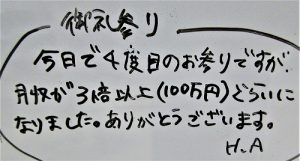 御礼参り
今日で4度目のお参りですが、
月収が3倍以上(100万円)ぐらいに
なりました。ありがとうございます。
H.A